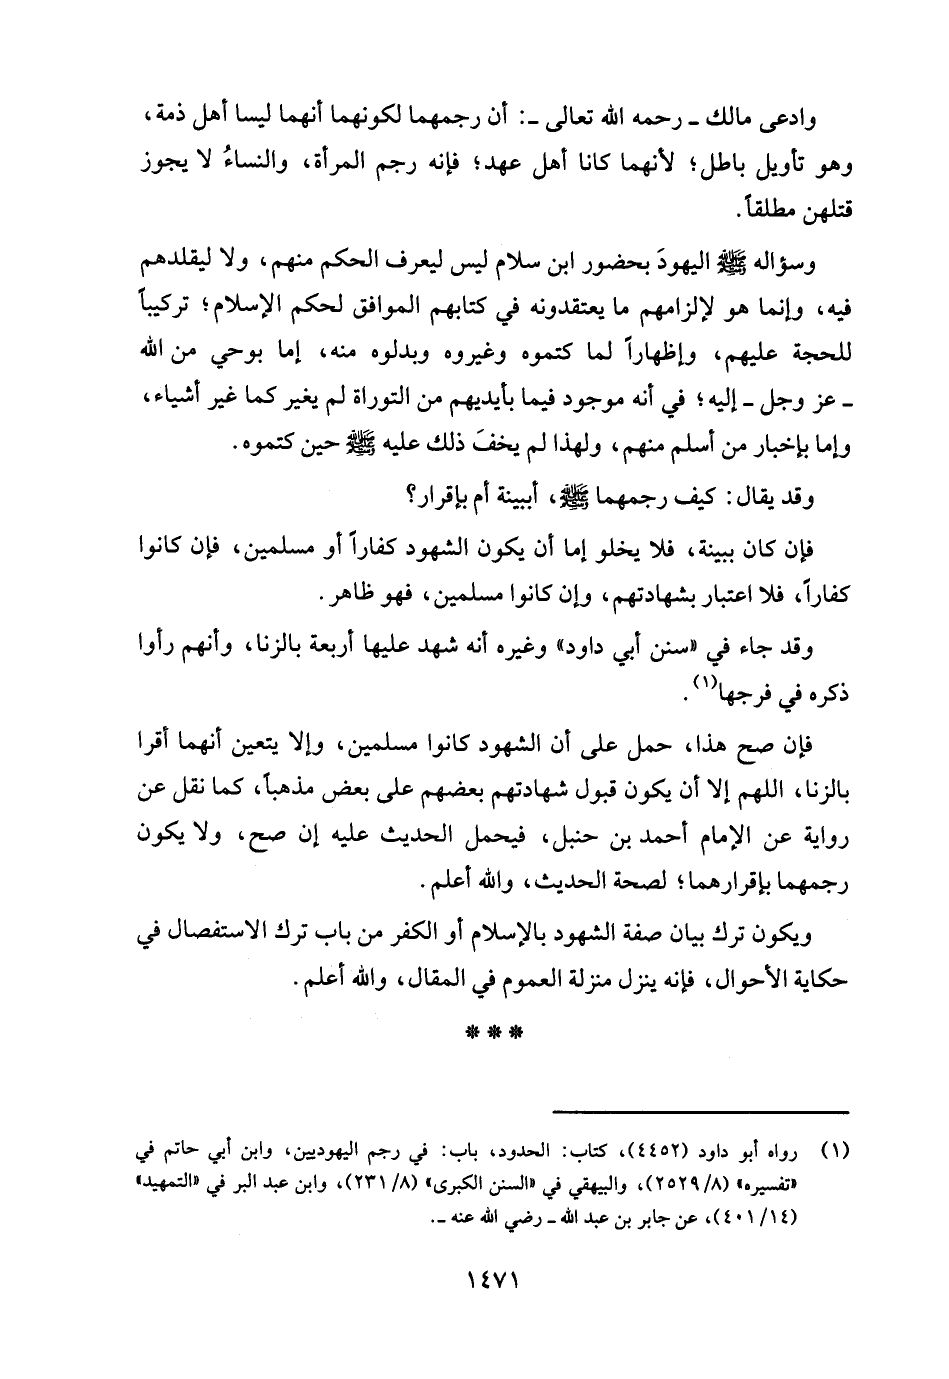 وادعى مالك ـ رحمه الله تعالى ـ: أن رجمهما لكونهما أنهما ليسا أهل ذمة،
وهو تأويل باطل؛ لأنهما كانا أهل عهد؛ فإنه رجم المرأة، والنساءُ لا يجوز
قتلهن مطلقاً.
وسؤاله ﷺ اليهودَ بحضور ابن سلام ليس ليعرف الحكم منهم، ولا ليقلدهم
فيه، وإنما هو لإلزامهم ما يعتقدونه في كتابهم الموافق لحكم الإسلام؛ تركيباً
للحجة عليهم، وإظهاراً لما كتموه وغيروه وبدلوه منه، إما بوحي من الله
ـ عز وجل ـ إليه؛ في أنه موجود فيما بأيديهم من التوراة لم يغير كما غير أشياء،
وإما بإخبار من أسلم منهم، ولهذا لم يخفَ ذلك عليه ﷺ حين كتموه.
وقد يقال: كيف رجمهما ﷺ، أببينة أم بإقرار؟
فإن كان ببينة، فلا يخلو إما أن يكون الشهود كفاراً أو مسلمين، فإن كانوا
كفاراً، فلا اعتبار بشهادتهم، وإن كانوا مسلمين، فهو ظاهر.
وقد جاء في «سنن أبي داود» وغيره أنه شهد عليها أربعة بالزنا، وأنهم رأوا
ذكره في فرجها(١).
فإن صح هذا، حمل على أن الشهود كانوا مسلمين، وإلا يتعين أنهما أقرا
بالزنا، اللهم إلا أن يكون قبول شهادتهم بعضهم على بعض مذهباً، كما نقل عن
رواية عن الإمام أحمد بن حنبل، فيحمل الحديث عليه إن صح، ولا يكون
رجمهما بإقرارهما؛ لصحة الحديث، والله أعلم.
ويكون ترك بيان صفة الشهود بالإسلام أو الكفر من باب ترك الاستفصال في
حكاية الأحوال، فإنه ينزل منزلة العموم في المقال، والله أعلم.
* * *
(١) رواه أبو داود (٤٤٥٢)، كتاب: الحدود، باب: في رجم اليهوديين، وابن أبي حاتم في
«تفسيره» (٨/ ٢٥٢٩)، والبيهقي في «السنن الكبرى» (٨/ ٢٣١)، وابن عبد البر في «التمهيد»
(١٤/ ٤٠١)، عن جابر بن عبد الله ـ رضي الله عنه ـ.
١٤٧١